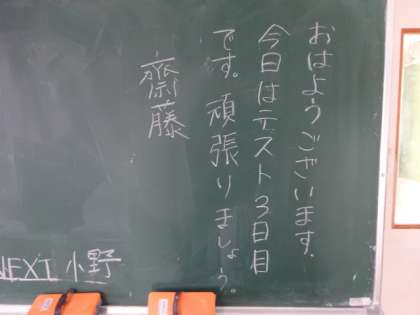 おはようございます.
今日はテスト3日目
です。頑張りましょう。
齋藤
NEXT 小野